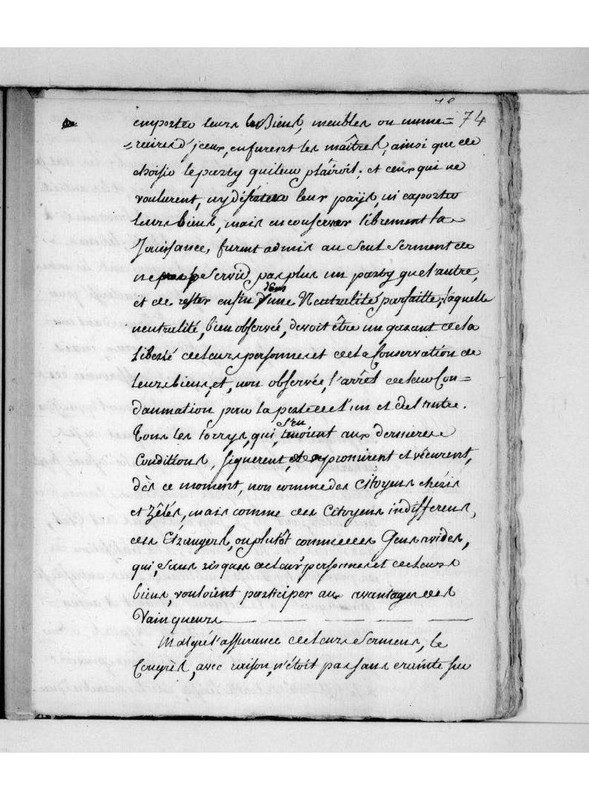 74
emporter leurs Biens, meubles ou nume=
=raires d'iceux, en furent les maîtres, ainsi que de
choisir le party qui leur plairoit; et ceux qui ne
voulurent, ny déserter leur païs, ni exporter
leurs biens, mais en conserver librement la
Jouissance, furent admis au seul serment de
ne servir pas plus un party que l'autre,
et de rester enfin dans une Neutralité parfaitte, laquelle
neutralité, bien observée, devoit être un garant de la
liberté de leurs personnes et de la Conservation de
leurs biens, et, non observée, l'arrêt de leur Con=
damnation pour la perte de l'un et de l'autre.
Tous les Torrys, qui s'en tinoient aux dernieres
Conditions, signerent, promirent et vécurent,
dès ce moment, non comme des Citoyens chéris
et Zélés, mais comme des Citoyens indifferens,
des Etrangers, ou plutôt comme des Gens avides,
qui, sans risques de leurs personnes et de leurs
biens, vouloient participer aux avantages des
Vainqueurs
Malgré l'assurance de leurs Sermens, le
Congrès, avec raison, n'étoit pas sans crainte sur